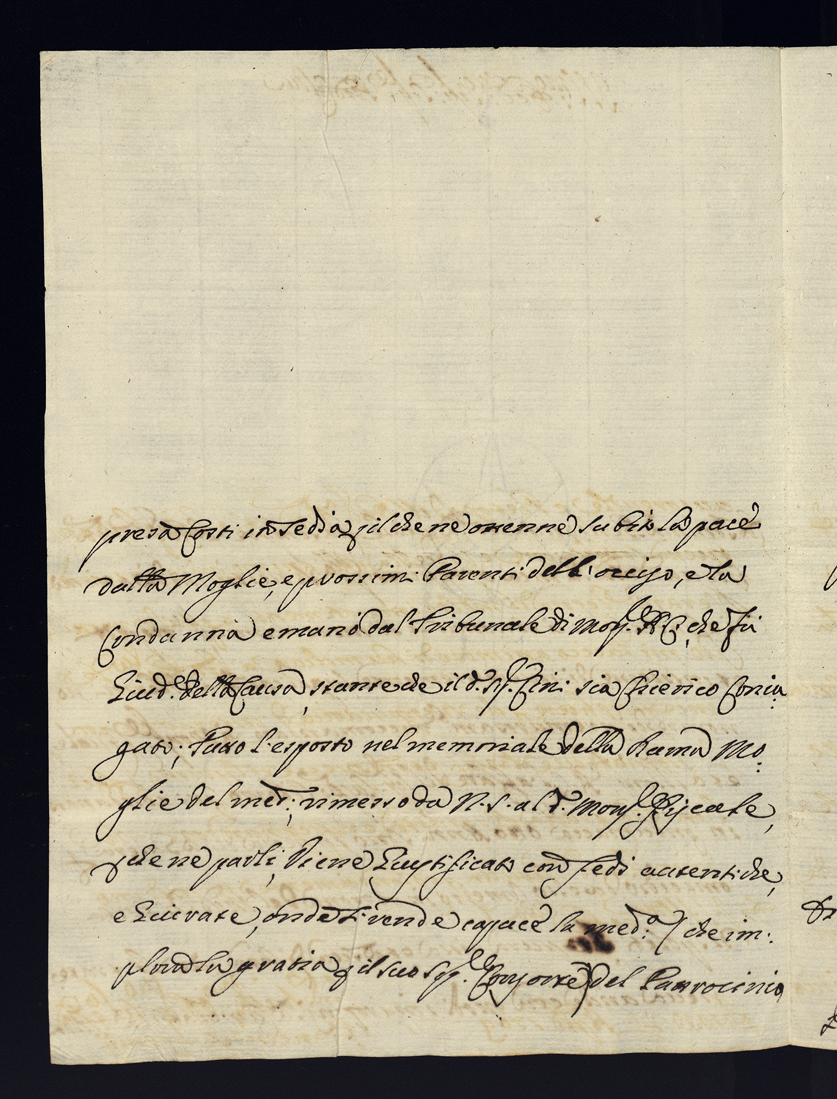 presa costì in Sedia, p il che ne ottenne subito la pace
dalla Moglie, e prossimi Parenti dell'occiso, e la
Condanna emanò dal Tribunale di Mons.r AC, che fù
Giud.e della Causa, stante che il d.o Sig.r Cini sia Chierico Coniu
gato; Tutto l'esposto nel memoriale della Rama Mo:
glie del med.o, rimesso da N. S. al d.o Mons.r Fiscale,
p che ne parli, viene giustificato con fedi autentiche,
e giurate, onde si rende capace la med.a (che im:
plora la gratia p il suo Sig.r Consorte) del Patrocinio